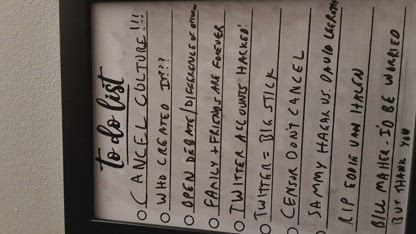 to do list
CANCEL CULTURE!!!
WHO CREATED IT???
OPEN DEBATE/DIFFERENCE OF OPINION
FAMILY + FRIENDS ARE FOREVER
TWITTER ACCOUNTS HACKED!
TWITTER = BIG STICK
CENSOR DON'T CANCEL
SAMMY HAGAR VS. DAVID LEE ROTH
RIP EDDIE VAN HALEN
BILL MAHER - I'D BE WORRIED
BUT THANK YOU